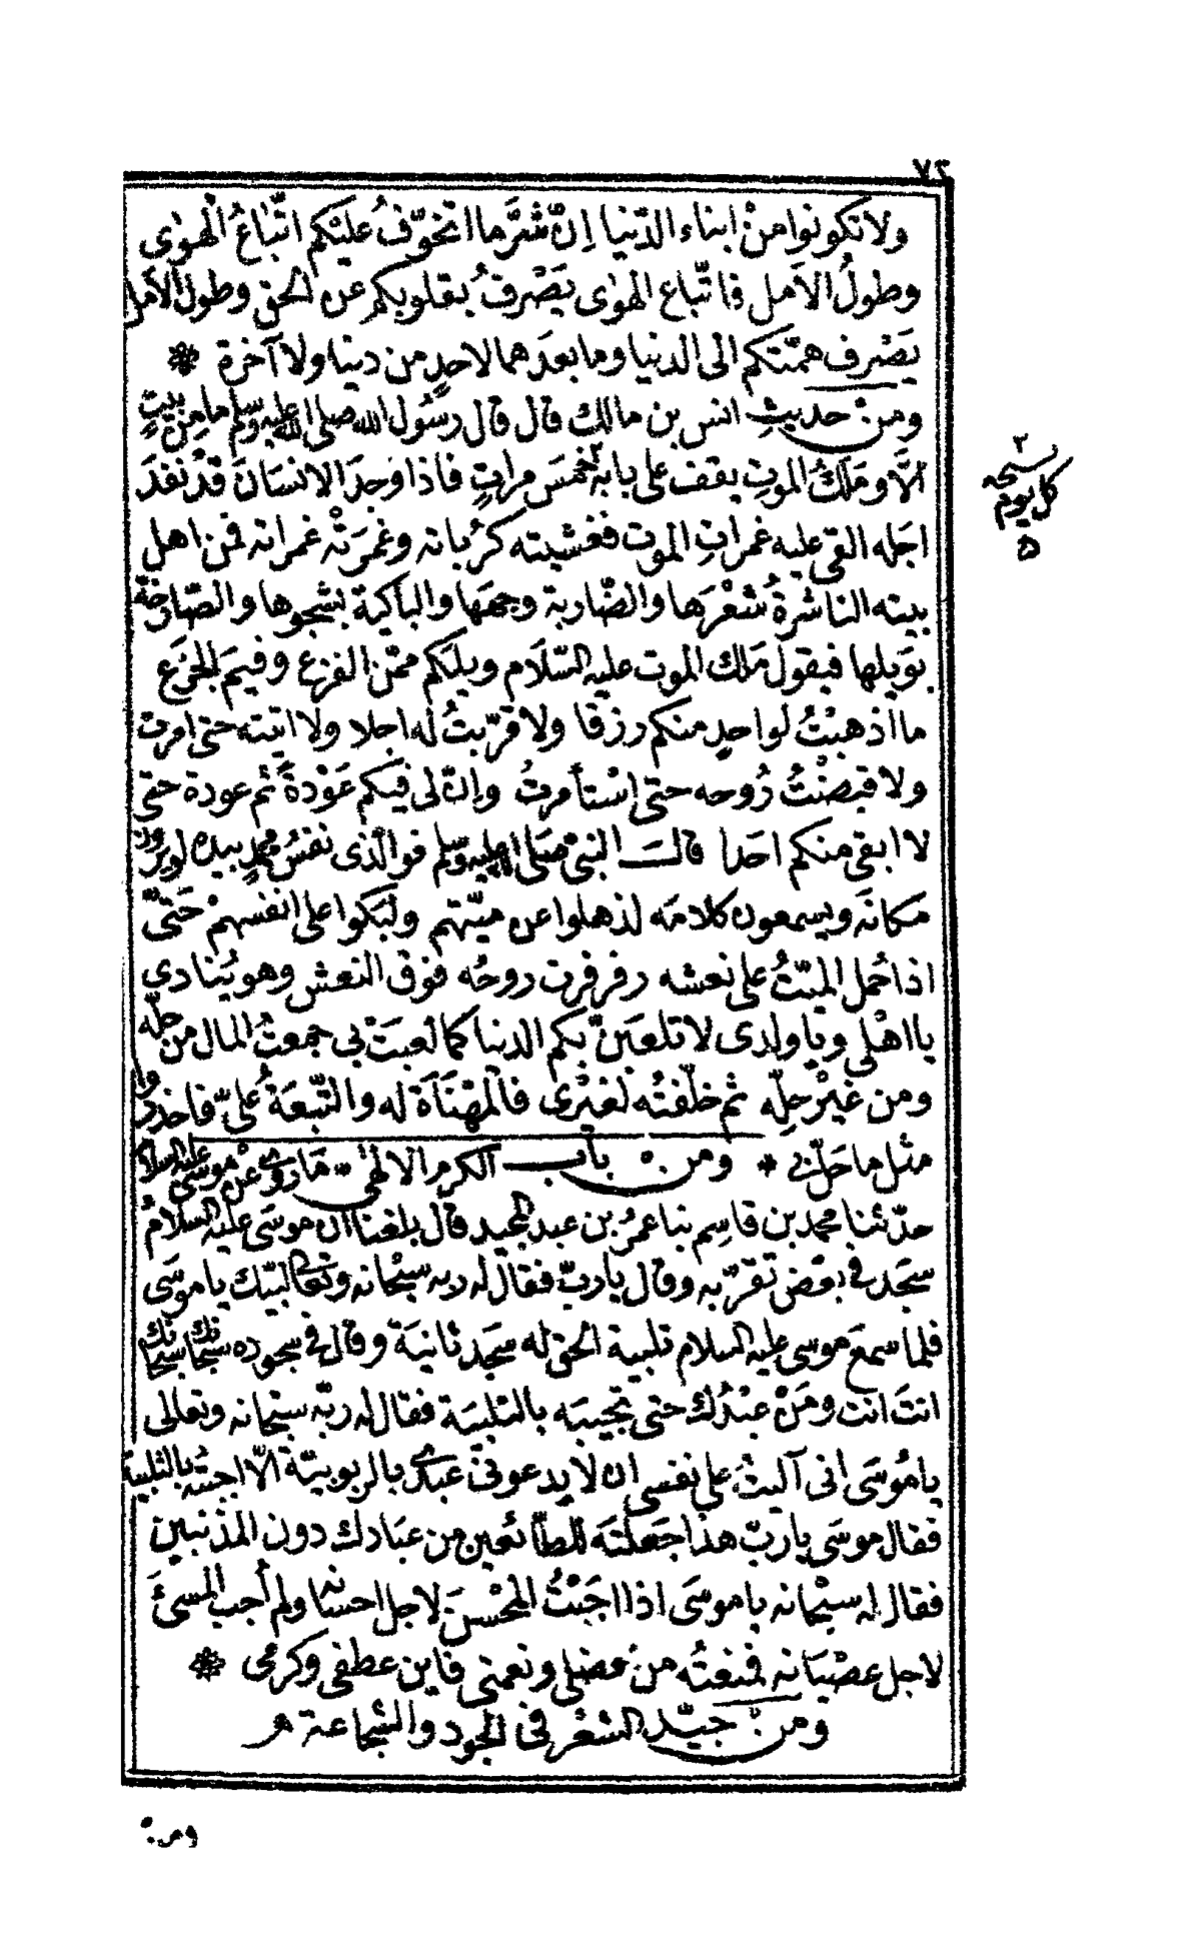 ٧٣
ولا تكونوا منْ ابناء الدّنيا اِنّ شَرَّ ما اتخوّفُ عليْكم اتّباعُ الْهوٰى
وطولُ الاَمل فاتّباع الهوٰى يَصْرفُ بقلوبكم عن الحق وطول الاَمل
يَصْرف همّتكم الى الدنيا وما بعدَهما لاحدٍ من دنيا ولا آخرة *
ومن حديثِ انس بن مالك قال قال رسُول الله صلى الله عليه وسلم ما مِن بيتٍ
الاَّ ومَلَكُ الموتِ يقف على بابه خمسَ مراتٍ فاذا وَجدَ الانسَانَ قدْ نفدَ
٢ نسخه
كل يوم
٥
اجَله القى عليه غمراتِ الموت فغشيته كرُباته وغمرَتْه غمراته فمن اهل
بيته الناشرةُ شعْرَها والضّاربة وجهَها والباكية بشجوها والصّارخة
بوَيلها فيقول مَلك الموت عليه السّلَام ويلكم ممّن الفزع وفيمَ الجزَع
ما اذهبْتُ لواحدٍ منكم رزقا ولا قرّبتُ له اجلا ولا اتيته حتى امرت
ولا قبضْتُ رُوحه حتى اسْتأمرتُ وانّ لى فيكم عَوْدةً ثم عودة حتى
لا ابقى منكم احَدا قالـــ النبىّ صَلى الله عليه وسلم فو الّذى نفسُ محمدٍ بيده لو يرون
مَكانَه ويسمعون كلامَه لذهلوا عن ميّتهم ولبَكوا على انفسهمْ حَتىّ
اذا حُمل الميّتُ على نعشه رفرفرت روحُه فوق النعش وهو يُنادى
يا اهْلى ويا ولدى لا تلعبَنّ بكم الدنيا كما لعبَتْ بى جمعتُ المال من حلّه
ومن غيْر حِلّه ثم خلّفتُه لغيْرى فالْمهْنَأَة له والتّبعَةُ علىّ فاحذروا
مثل ما حَلّ بى * ومن بابــ الكرم الالهٰى * مَا روى عن موْسٰى عليه السلام
حدّثنا محمد بن قاسِم بنا عمرُ بن عبد المجيد قال بلغنا ان موسَى عليه السلامُ
سجَد فى بعْض تقرّبه وقال يا ربّ فقال له ربه سبْحانه وتعالى لبّيك يا موسَى
فلما سمعَ موسى عليه السلام تلبية الحق له سَجَد ثانيَة وقال فى سجوده سبحانك سبحانك
انتَ انت ومَنْ عبْدُك حتى تجيبَه بالتلبيَة فقال له ربّه سبْحانه وتعالى
يا مُوسَى انى آليتُ على نفسى ان لا يدعونىَ عبدى بالربوبيّة الّا اجبتُه بالتلبية
فقال موسَى يا ربّ هذا جَعلتَه للطّائعين من عبَادك دون المذنبين
فقال له سبْحانه يا موسَى اذا اجَبْتُ المُحْسنَ لاجل احسَانه ولم اُجب المسئَ
لاجل عصْيَانه فمنعتُه من فضلى ونعمتى فاين عطفى وكرمى *
ومن جيّد الشعْر فى الجود والشجاعة
ومن